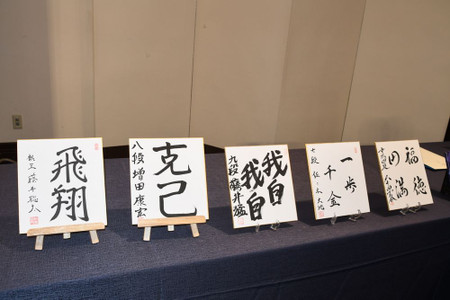 飛翔
藤井聡太
克己
八段 増田康宏
我自
我自
九段 藤井猛
一歩
千金
七段 佐々木大地
福徳
円満